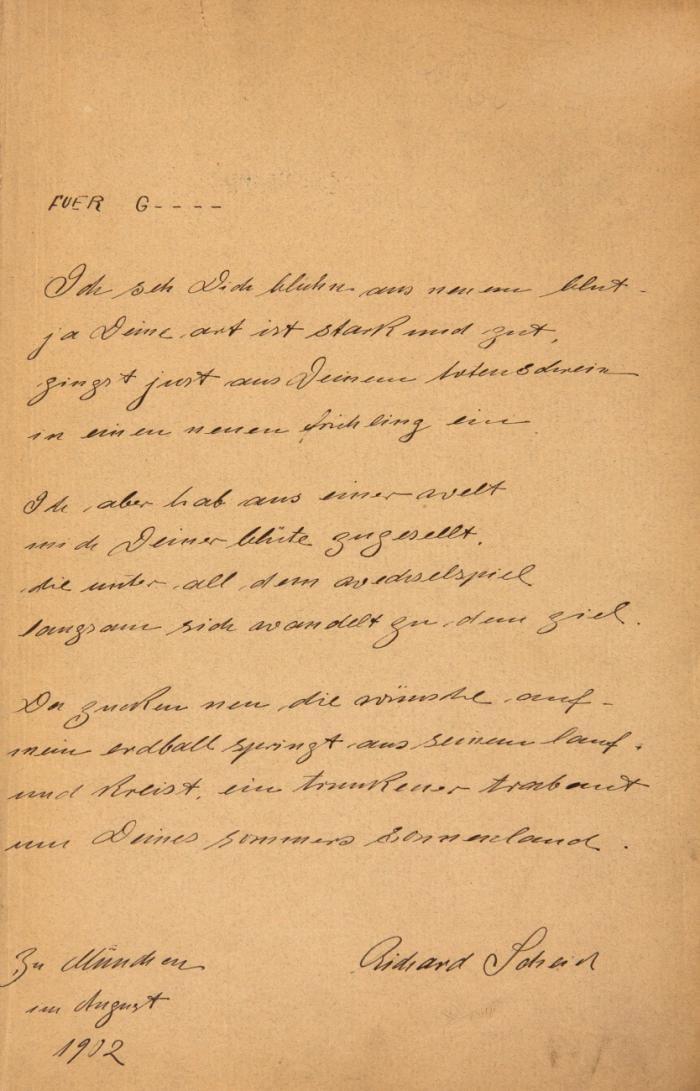 FUER G----
Ich seh Dich blühn aus neuem blut -
ja Deine art ist stark und gut,
gingst just aus Deinem totenschrein
in einen neuen frühling ein
Ich aber hab aus einer welt
mich Deiner blüte zugesellt,
die unter all dem wechselspiel
langsam sich wandelt zu dem ziel.
Da zucken neu die wünsche auf -
mein erdball springt aus seinem lauf,
und kreist, ein trunkener trabant
um Deines sommers sonnenland.
Zu München Richard Scheid
im August
1902